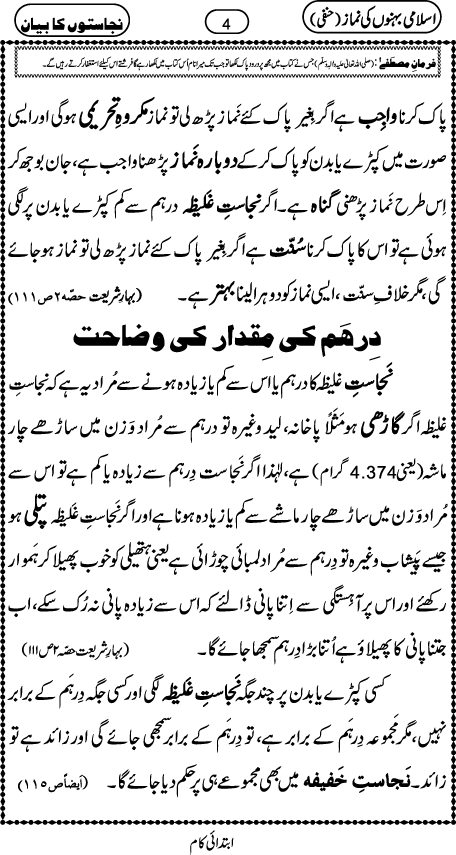 اسلامی بہنوں کی نماز (حنفی)
4
نجاستوں کا بیان
فرمانِ مصطَفٰے : (صلی اللہ تعالیٰ علیہ والہ وسلم) جس نے کتاب میں مجھ پر درود پاک لکھا تو جب تک میرا نام اُس کتاب میں لکھا رہے گا فرشتے اس کیلئے استغفار کرتے رہیں گے۔
پاک کرنا واجِب ہے اگر بِغیر پاک کئے نَماز پڑھ لی تو نَماز مکروہِ تحریمی ہوگی اور ایسی
صورت میں کپڑے یا بدن کو پاک کر کے دوبارہ نَماز پڑھنا واجب ہے، جان بوجھ کر
اِس طرح نَماز پڑھنی گناہ ہے۔ اگر نَجاستِ غَلیظہ درہم سے کم کپڑے یا بدن پر لگی
ہوئی ہے تو اس کا پاک کرنا سنّت ہے اگر بِغیر پاک کئے نَماز پڑھ لی تو نماز ہو جائے
گی، مگر خلافِ سنّت ، ایسی نَماز کو دوہرا لینا بہتر ہے۔ (بہارِ شریعت حصّہ ۲ ص ۱۱۱)
دِرہَم کی مِقدار کی وضاحت
نَجاستِ غلیظہ کا درہم یا اس سے کم یا زیادہ ہونے سے مُراد یہ ہے کہ نَجاستِ
غلیظہ اگر گاڑھی ہو مَثَلًا پاخانہ، لید وغیرہ تو درہم سے مُراد وَزن میں ساڑھے چار
ماشہ (یعنی 4.374 گرام) ہے، لہٰذا اگر نَجاست دِرہم سے زیادہ یا کم ہے تو اس سے
مُراد وَزن میں ساڑھے چار ماشے سے کم یا زیادہ ہونا ہے اور اگر نَجاستِ غلیظہ پتلی ہو
جیسے پَیشاب وغیرہ تو دِرہم سے مُراد لمبائی چوڑائی ہے یعنی ہتھیلی کو خوب پھیلا کر ہموار
رکھئے اور اس پر آہستگی سے اِتنا پانی ڈالئے کہ اس سے زیادہ پانی نہ رُک سکے، اب
جتنا پانی کا پھیلاؤ ہے اُتنا بڑا دِرہم سمجھا جائے گا۔ (بہارِ شریعت حصّہ ۲ ص ۱۱۱)
کسی کپڑے یا بدن پر چند جگہ نَجاستِ غَلیظہ لگی اور کسی جگہ دِرہم کے برابر
نہیں، مگر مجموعہ دِرہم کے برابر ہے، تو دِرہم کے برابر سمجھی جائے گی اور زائد ہے تو
زائد۔ نَجاستِ خَفیفہ میں بھی مجموعے ہی پر حکم دیا جائے گا۔ (ایضاً ص ۱۱۵)
ابتدائی کام